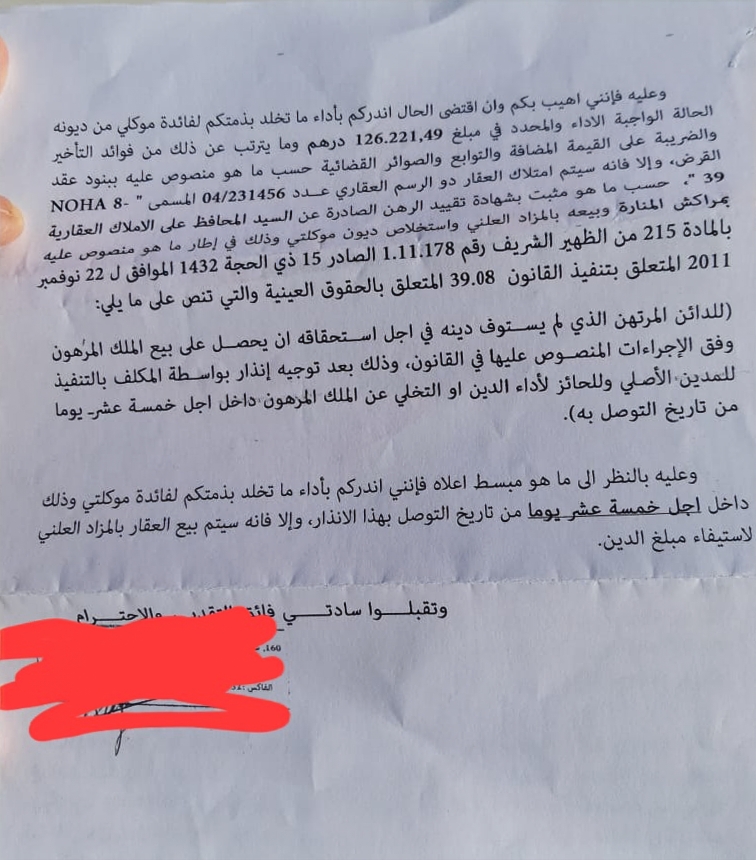 وعليه فإنني اهيب بكم وان اقتضى الحال اندركم بأداء ما تخلد بذمتكم لفائدة موكلي من ديونه
الحالة الواجبة الاداء والمحدد في مبلغ 126.221,49 درهم وما يترتب عن ذلك من فوائد التأخير
والضريبة على القيمة المضافة والتوابع والصوائر القضائية حسب ما هو منصوص عليه ببنود عقد
القرض، وإلا فانه سيتم امتلاك العقار دو الرسم العقاري عـدد 04/231456 المسمى " NOHA 8-
39 ". حسب ما هو مثبت بشهادة تقييد الرهن الصادرة عن السيد المحافظ على الاملاك العقارية
بمراكش المنارة وبيعه بالمزاد العلني واستخلاص ديون موكلتي وذلك في إطار ما هو منصوص عليه
بالمادة 215 من الظهير الشريف رقم 1.11.178 الصادر 15 ذي الحجة 1432 الموافق ل 22 نوفمبر
2011 المتعلق بتنفيذ القانون 39.08 المتعلق بالحقوق العينية والتي تنص على ما يلي:
(للدائن المرتهن الذي لم يستوف دينه في اجل استحقاقه ان يحصل على بيع الملك المرهون
وفق الإجراءات المنصوص عليها في القانون، وذلك بعد توجيه إنذار بواسطة المكلف بالتنفيذ
للمدين الأصلي وللحائز لأداء الدين او التخلي عن الملك المرهون داخل اجل خمسة عشر يوما
من تاريخ التوصل به).
وعليه بالنظر الى ما هو مبسط اعلاه فإنني اندركم بأداء ما تخلد بذمتكم لفائدة موكلتي وذلك
داخل اجل خمسة عشر يوما من تاريخ التوصل بهذا الانذار، وإلا فانه سيتم بيع العقار بالمزاد العلني
لاستيفاء مبلغ الدين.
وتقبلوا سادتي فائق التقدير والاحترام
160,
الفاكس